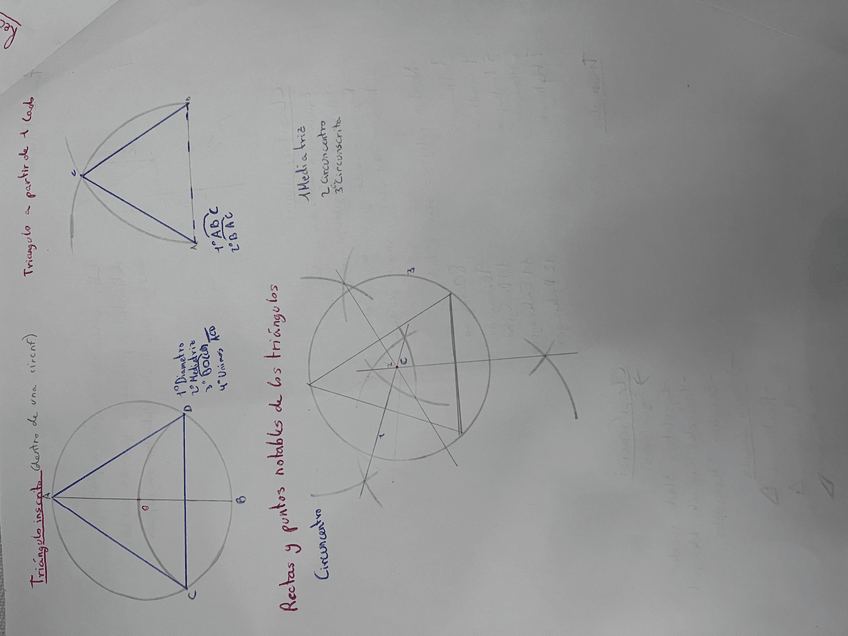 Triángulo inscrito (dentro de una circnf)
A
O
B
C
D
1º Diametro
2º Mediatriz
4º Unimos ACD
Triangulo a partir de 1 lado
C
A
B
1º ABC
2º BAC
Rectas y puntos notables de los triángulos
Circuncentro
1
2
C
3
1 Mediatriz
2 Circuncentro
3º Circunscrita